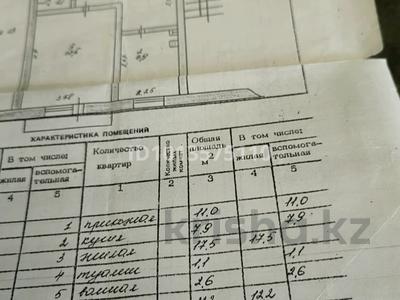 3.60 2.25
ХАРАКТЕРИСТИКА ПОМЕЩЕНИЙ
В том числе: Количество квартир Количество жилых комнат Общая площадь м В том числе:
жилая вспомога-тельная жилая вспомога-тельная
4 5 1 2 3 4 5
1 прихожая 11,0 11,0
2 кухня 7,9 7,9
3 жилая 17,5 17,5
4 туалет 1,1 1,1
5 ванная 2,6 2,6
12,2
krisha.kz